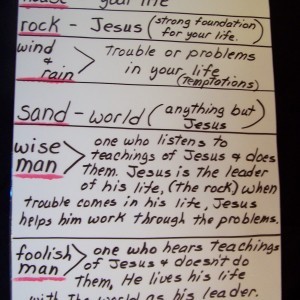 house - your life
rock - Jesus (strong foundation for your life.
wind & rain > Trouble or problems in your life (Temptations)
sand - world (anything but Jesus
wise man > one who listens to
teachings of Jesus & does
them. Jesus is the leader
of his life, (the rock) when
trouble comes in his life, Jesus
helps him work through the problems.
foolish man > one who hears teachings
of Jesus & doesn't do
them, He lives his life
with the world as his leader.